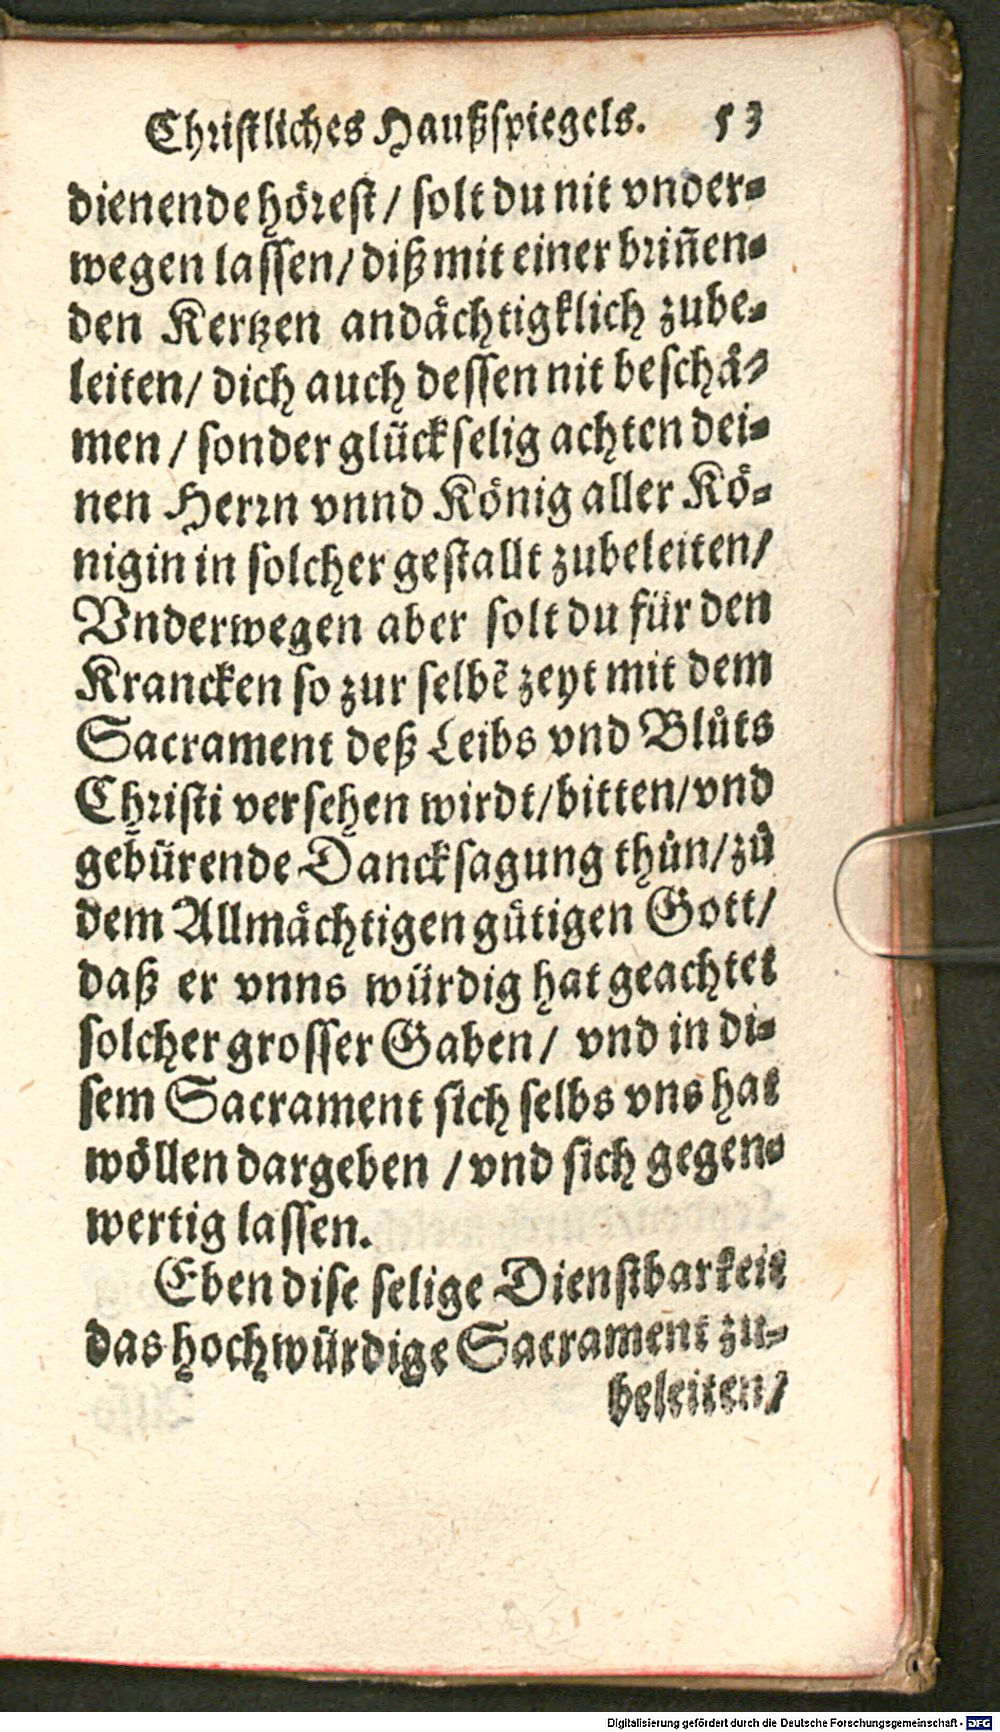 Christliches Haußspiegels. 53
dienende hörest / solt du nit vnder-
wegen lassen / diß mit einer briñen-
den Kertzen andächtigklich zube-
leiten / dich auch dessen nit beschä-
men / sonder glückselig achten dei-
nen Herrn vnnd König aller Kö-
nigin in solcher gestallt zubeleiten /
Vnderwegen aber solt du für den
Krancken so zur selbẽ zeyt mit dem
Sacrament deß Leibs vnd Blůts
Christi versehen wirdt / bitten / vnd
gebürende Dancksagung thůn / zů
dem Allmächtigen gütigen Gott /
daß er vnns würdig hat geachtet
solcher grosser Gaben / vnd in di-
sem Sacrament sich selbs vns hat
wöllen dargeben / vnd sich gegen-
wertig lassen.
Eben dise selige Dienstbarkeit
das hochwürdige Sacrament zu-
beleiten /
Digitalisierung gefördert durch die Deutsche Forschungsgemeinschaft - DFG